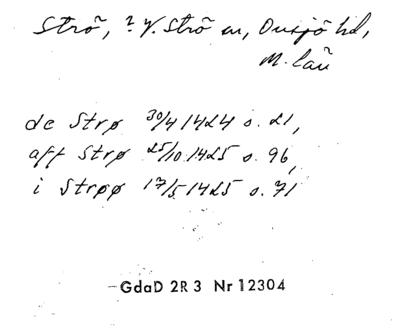 Strö, ? V. Strö sn, Onsjö hd,
M. län
de Strø 30/4 1424 s. 21,
aff Strø 25/10 1425 s. 96,
i Strøø 17/5 1425 s. 71
GdaD 2R 3 Nr 12304